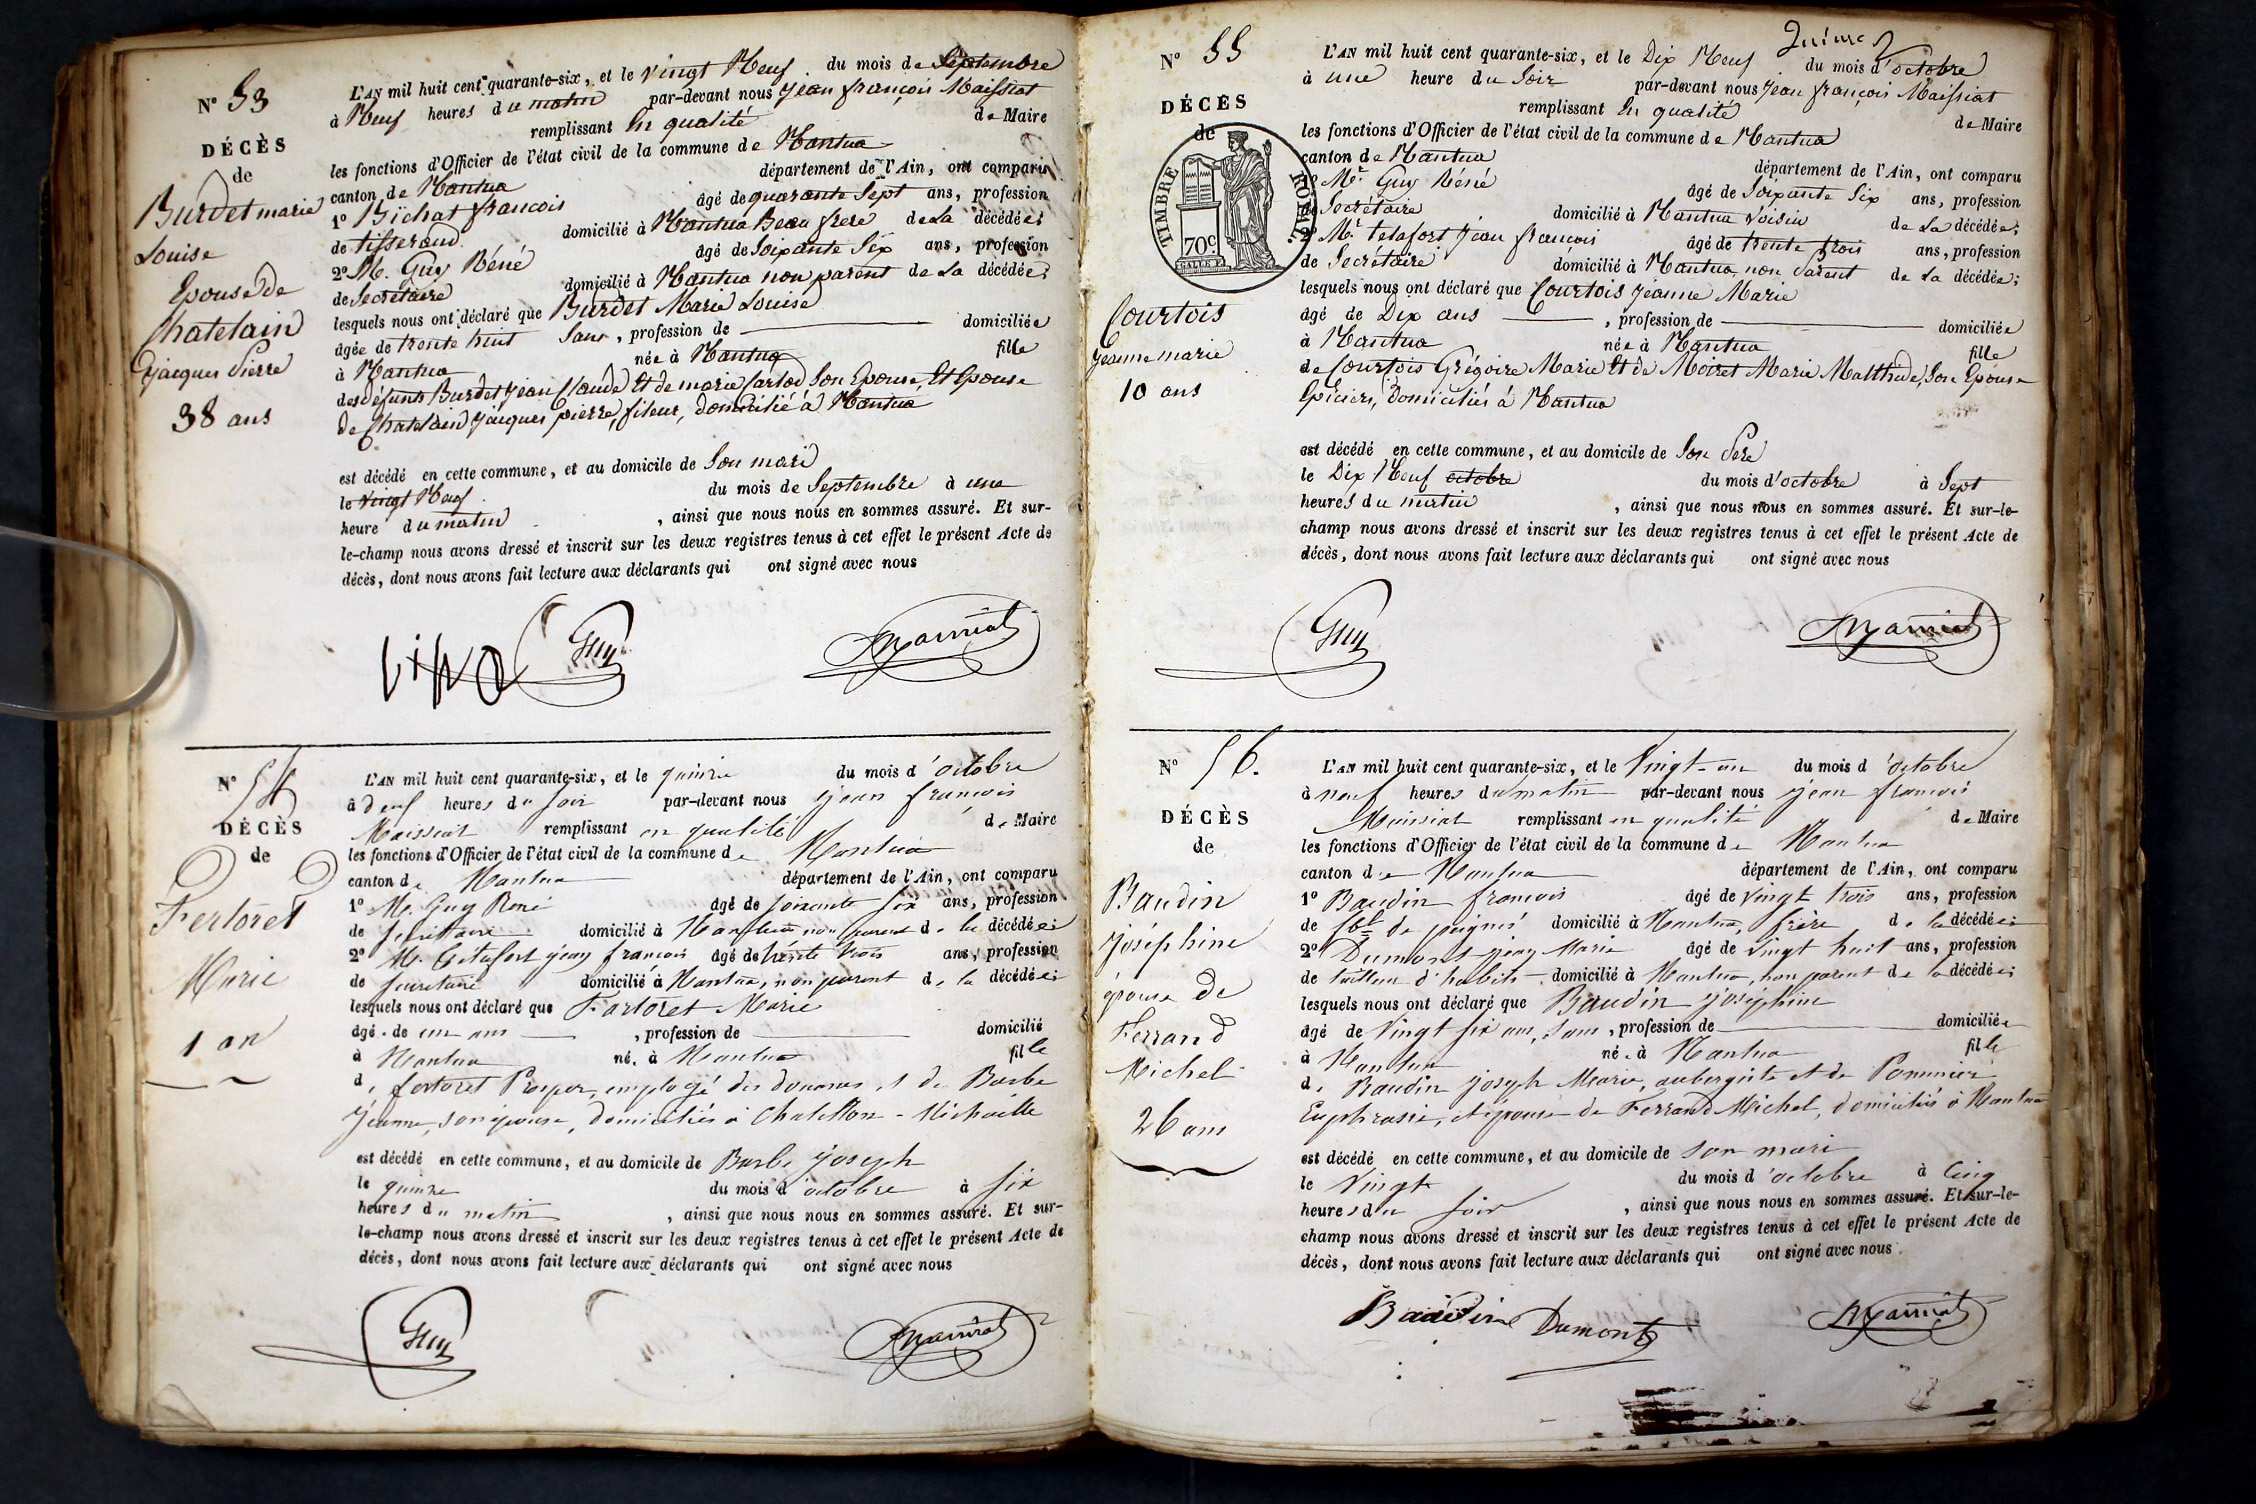 N° 53
DÉCÈS
de
Burdet marie
Louise
Epouse de
Chatelain
Jacques Pierre
38 ans
L'AN mil huit cent quarante-six, et le vingt Neuf du mois de Septembre
à Neuf heures du matin par-devant nous Jean françois Maissiat
remplissant En qualité de Maire
les fonctions d'Officier de l'état civil de la commune de Nantua
canton de Nantua département de l'Ain, ont comparu
1° Bichat francois âgé de quarante Sept ans, profession
de tisserand domicilié à Nantua Beau frere de La décédée;
2° M. Guy Réné âgé de Soixante Six ans, profession
de Secrétaire domicilié à Nantua non parent de La décédée;
lesquels nous ont déclaré que Burdet Marie Louise
âgée de trente huit Sans, profession de domiciliée
à Nantua née à Nantua fille
des défunts Burdet Jean Claude Et de marie Son Epouse, Et Epouse
de Chatelain Jacques pierre, fileur, domicilié à Nantua
est décédé en cette commune, et au domicile de Son mari
le vingt Neuf du mois de Septembre à une
heure du matin, ainsi que nous nous en sommes assuré. Et sur-
le-champ nous avons dressé et inscrit sur les deux registres tenus à cet effet le présent Acte de
décès, dont nous avons fait lecture aux déclarants qui ont signé avec nous
Guy Maissiat
N° 54
DÉCÈS
de
Fertoret
Marie
1 an
L'AN mil huit cent quarante-six, et le quinze du mois d'octobre
à deux heures du soir par-devant nous jean francois
Maissiat remplissant en qualité de Maire
les fonctions d'Officier de l'état civil de la commune de Nantua
canton de Nantua département de l'Ain, ont comparu
1° M. Guy René âgé de soixante six ans, profession
de secrétaire domicilié à Nantua non parent de la décédée;
2° M. Létafort jean francois âgé de trente trois ans, profession
de secrétaire domicilié à Nantua, non parent de la décédée;
lesquels nous ont déclaré que Fertoret Marie
âgé. de un an, profession de domicilié
à Nantua né. à Nantua fille
de fertoret Prosper, employé des douanes, et de Barbe
Jeanne, son épouse, domiciliés à Chatillon-Michaille
est décédé en cette commune, et au domicile de Barbe joseph
le quinze du mois d'octobre à six
heures du matin, ainsi que nous nous en sommes assuré. Et sur-
le-champ nous avons dressé et inscrit sur les deux registres tenus à cet effet le présent Acte de
décès, dont nous avons fait lecture aux déclarants qui ont signé avec nous
Guy Maissiat
N° 55
DÉCÈS
de
TIMBRE ROYAL
70c
Courtois
Jeanne marie
10 ans
L'AN mil huit cent quarante-six, et le Dix Neuf du mois d'octobre
à une heure du Soir par-devant nous Jean françois Maissiat
remplissant En qualité de Maire
les fonctions d'Officier de l'état civil de la commune de Nantua
canton de Nantua département de l'Ain, ont comparu
Mr Guy Réné âgé de Soixante Six ans, profession
de Secrétaire domicilié à Nantua Voisin de La décédée;
Mr Létafort Jean francois âgé de trente trois ans, profession
de Secrétaire domicilié à Nantua, non Parent de La décédée;
lesquels nous ont déclaré que Courtois Jeanne Marie
âgé de Dix ans, profession de domiciliée
à Nantua née à Nantua fille
de Courtois Grégoire Marie Et de Moiret Marie Matthilde, Son Epouse
Epiciers, Domiciliés à Nantua
est décédé en cette commune, et au domicile de Son Père
le Dix Neuf octobre du mois d'octobre à Sept
heures du matin, ainsi que nous nous en sommes assuré. Et sur-le-
champ nous avons dressé et inscrit sur les deux registres tenus à cet effet le présent Acte de
décès, dont nous avons fait lecture aux déclarants qui ont signé avec nous
Guy Maissiat
N° 56.
DÉCÈS
de
Baudin
Joséphine
épouse de
Ferrand
Michel
26 ans
L'AN mil huit cent quarante-six, et le Vingt-un du mois d'octobre
à neuf heures du matin par-devant nous jean francois
Maissiat remplissant en qualité de Maire
les fonctions d'Officier de l'état civil de la commune de Nantua
canton de Nantua département de l'Ain, ont comparu
1° Baudin francois âgé de vingt trois ans, profession
de fbt de peignes domicilié à Nantua, frère de la décédée;
2° Dumont jean Marie âgé de vingt huit ans, profession
de tailleur d'habits domicilié à Nantua, non parent de la décédée;
lesquels nous ont déclaré que Baudin joséphine
âgé de Vingt six ans, sans, profession de domiciliée
à Nantua né. à Nantua fille
de Baudin joseph Marie, aubergiste et de Pommier
Euphrasie, et épouse de Ferrand Michel, domiciliés à Nantua
est décédé en cette commune, et au domicile de son mari
le Vingt du mois d'octobre à Cinq
heures du soir, ainsi que nous nous en sommes assuré. Et sur-le-
champ nous avons dressé et inscrit sur les deux registres tenus à cet effet le présent Acte de
décès, dont nous avons fait lecture aux déclarants qui ont signé avec nous
Baudin Dumont Maissiat